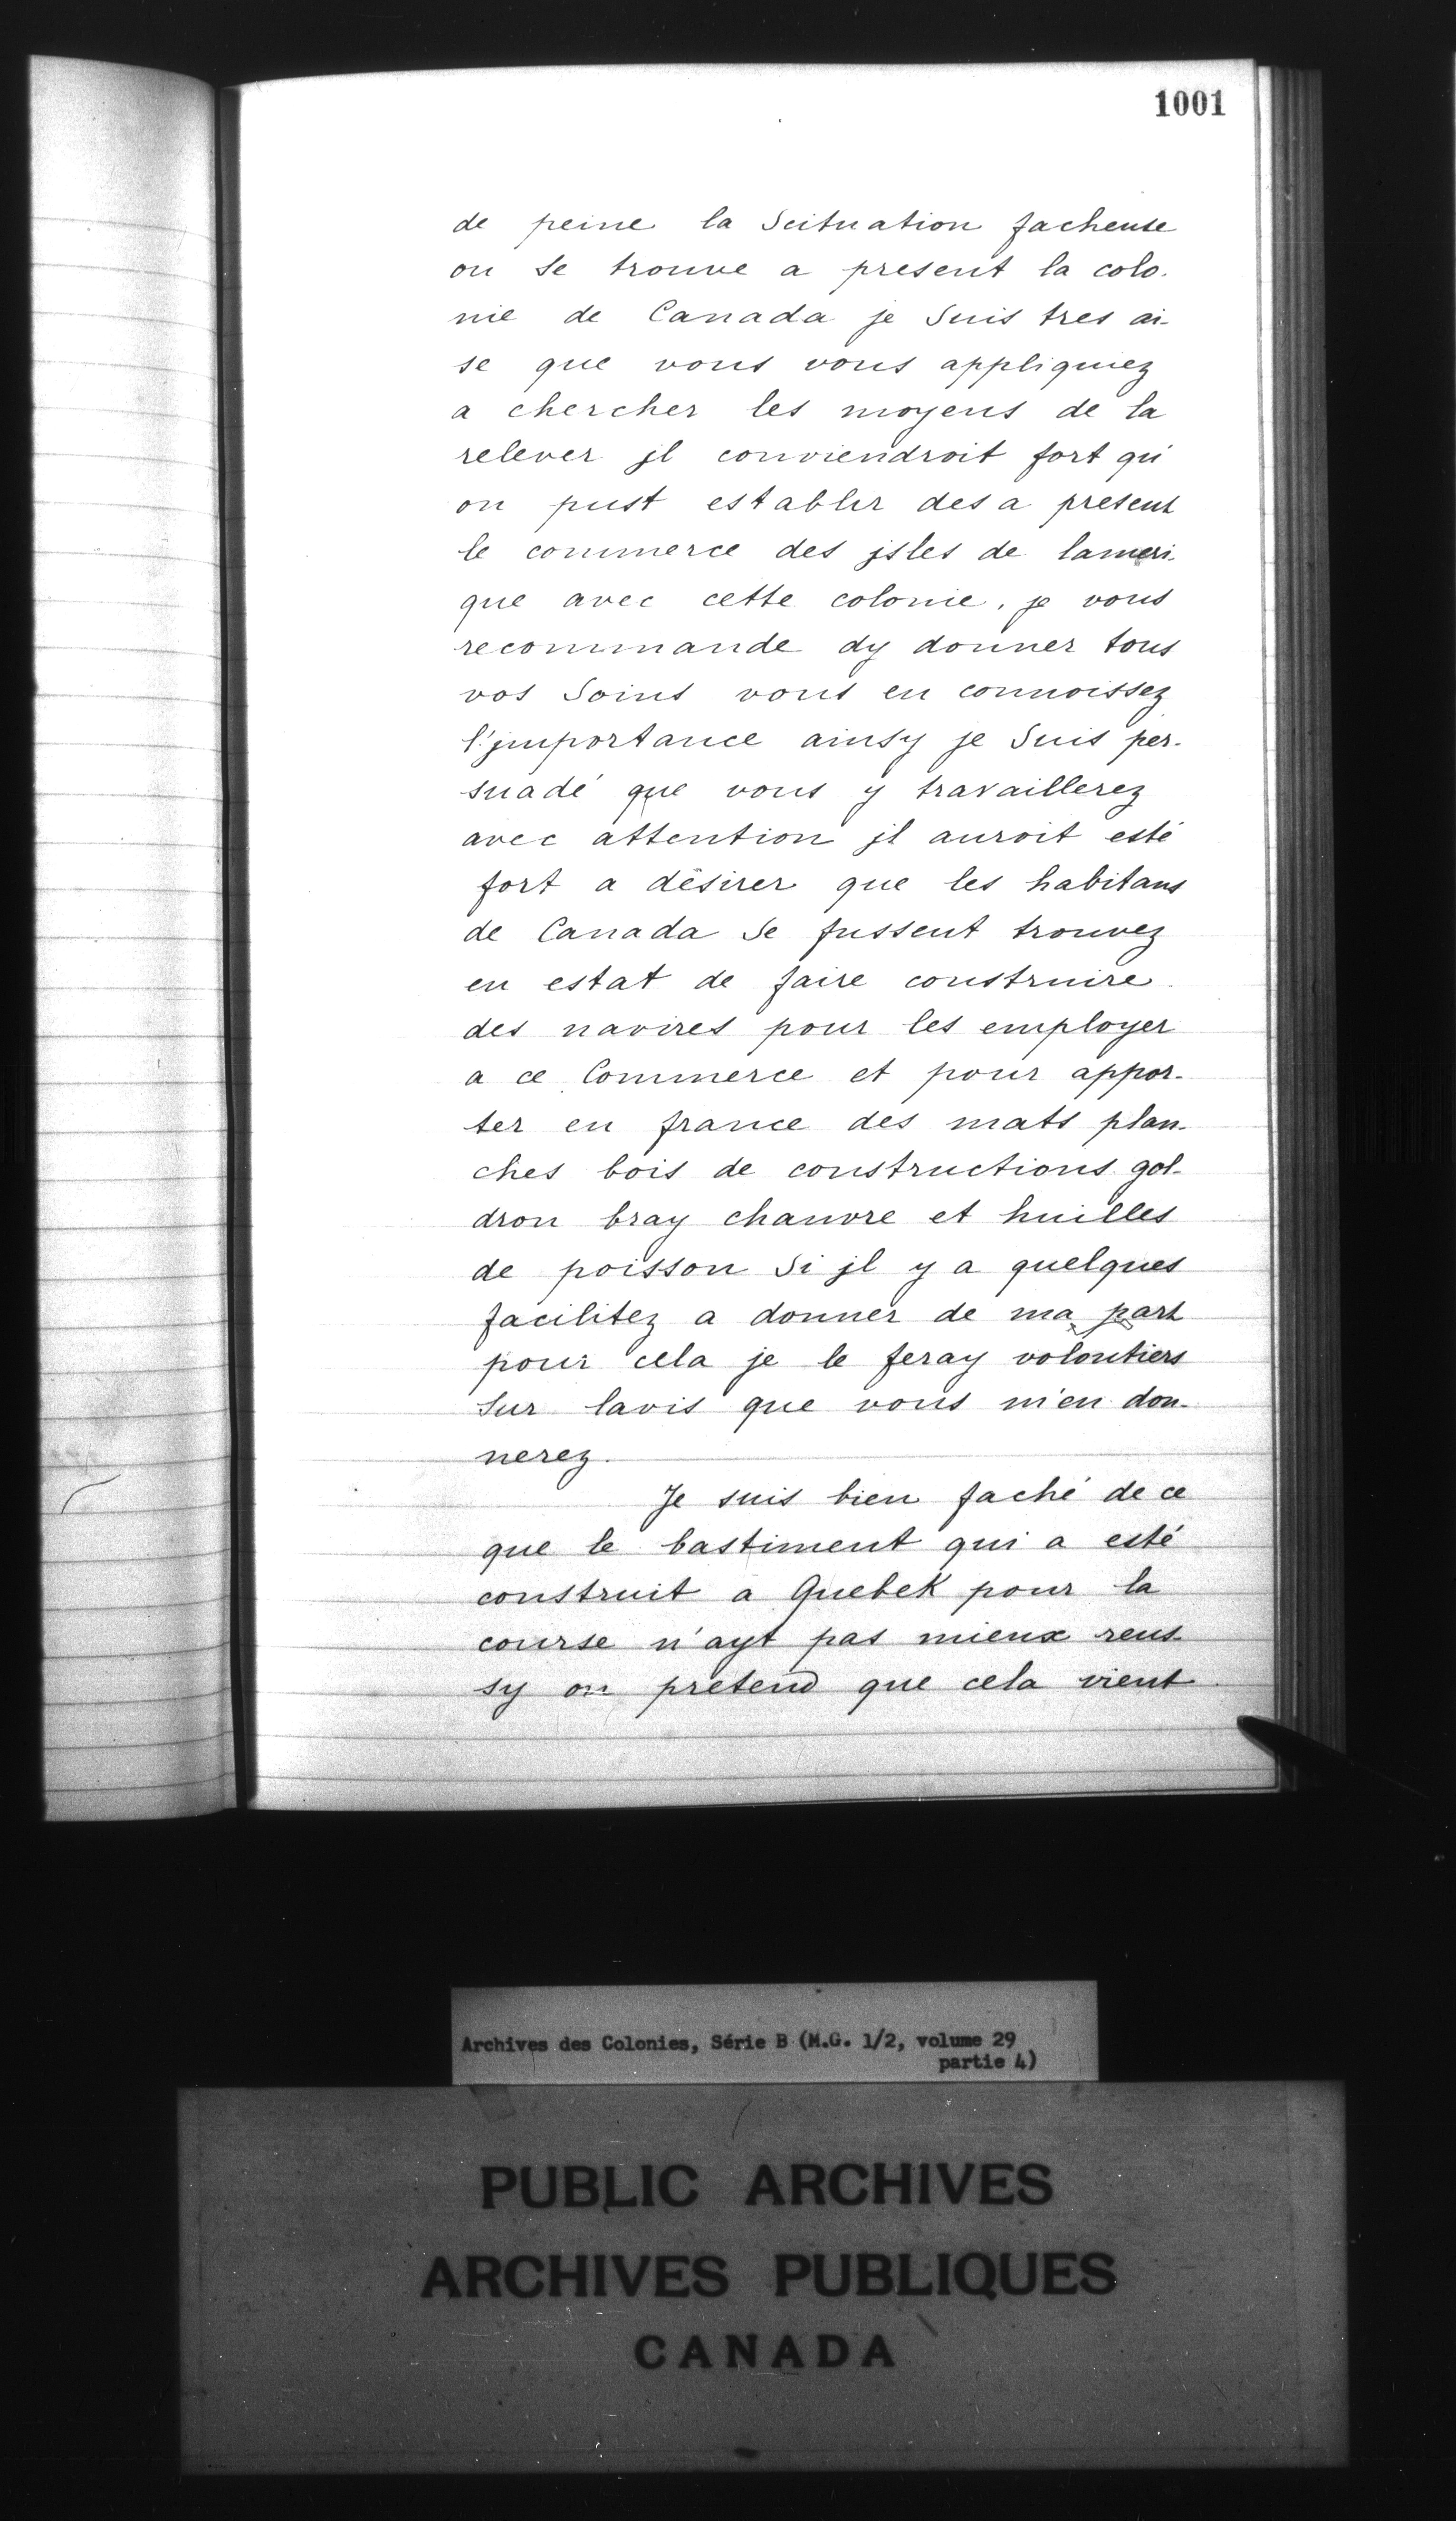 1001
de peine la Scituation facheuse
ou se trouve a present la colo-
nie de Canada je Suis tres ai-
se que vous vous appliquiez
a chercher les moyens de la
relever jl conviendroit fort qu'
on pust establir des a present
le commerce des jsles de lameri-
que avec cette colonie, je vous
recommande dy donner tous
vos Soins vous en connoissez
l'jmportance ainsy je Suis per-
suadé que vous y travaillerez
avec attention jl auroit esté
fort a désirer que les habitans
de Canada Se fussent trouvez
en estat de faire construire
des navires pour les employer
a ce Commerce et pour appor-
ter en france des mats plan-
ches bois de constructions gol-
dron bray chanvre et huilles
de poisson Si jl y a quelques
facilitez a donner de ma part
pour cela je le feray volontiers
Sur lavis que vous m'en don-
nerez.
Je suis bien faché de ce
que le bastiment qui a esté
construit a QuebeK pour la
course n'ayt pas mieux reus-
sy on pretend que cela vient
Archives des Colonies, Série B (M.G. 1/2, volume 29
partie 4)
PUBLIC ARCHIVES
ARCHIVES PUBLIQUES
CANADA